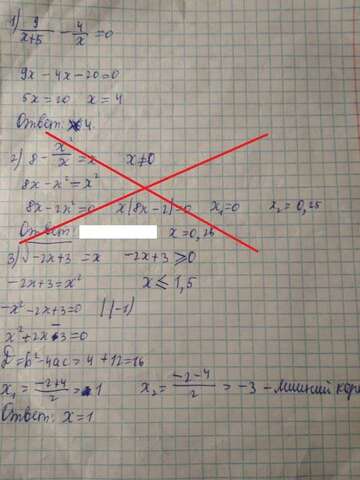 1) 9/(x+5) - 4/x = 0
9x - 4x - 20 = 0
5x = 20 x = 4
Ответ: 4
2) 8 - x²/x = x x≠0
8x - x² = x²
8x - 2x² = 0 x(8x-2)=0 x₁=0 x₂=0,25
Ответ: x = 0,25
3) √-2x+3 = x -2x+3 ≥ 0
-2x+3 = x² x ≤ 1,5
-x² - 2x+3=0 | (-1)
x² + 2x - 3 = 0
D = b² - 4ac = 4 + 12 = 16
x₁ = (-2+4)/2 = 1 x₂ = (-2-4)/2 = -3 - лишний кор
Ответ: x = 1